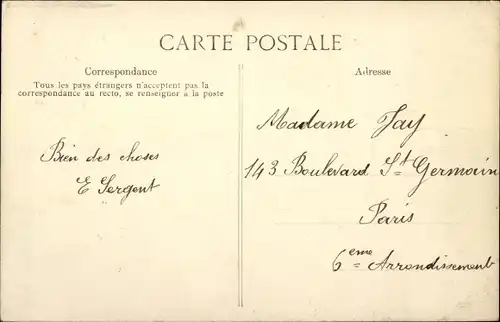 CARTE POSTALE
Correspondance
Tous les pays étrangers n'acceptent pas la
correspondance au recto, se renseigner à la poste
Bien des choses
E Sergent
Adresse
Madame Jay
143 Boulevard St Germain
Paris
6eme Arrondissement